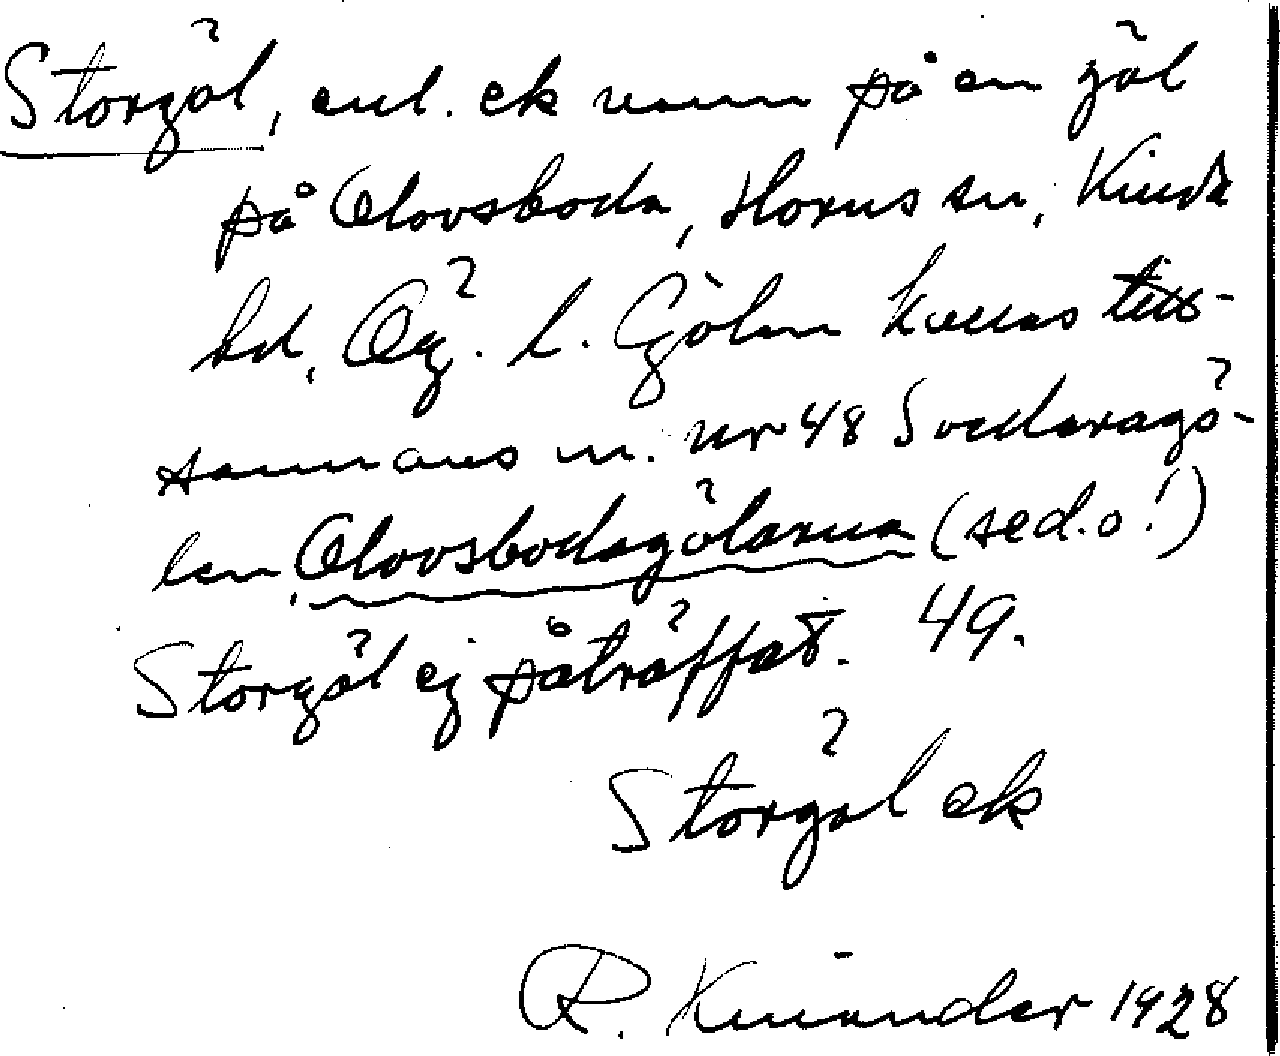 Storgöl, enl. ek namn på en göl
på Olovsboda, Horns sn, Kinda
hd, Ög. l. Gölen kallas till-
sammans m. nr 48 Svedaragö-
len, Olovsbodagölarna (se d. o.!)
Storgöl ej påträffat. 49.
Storgöl ek
R. Kinander 1928